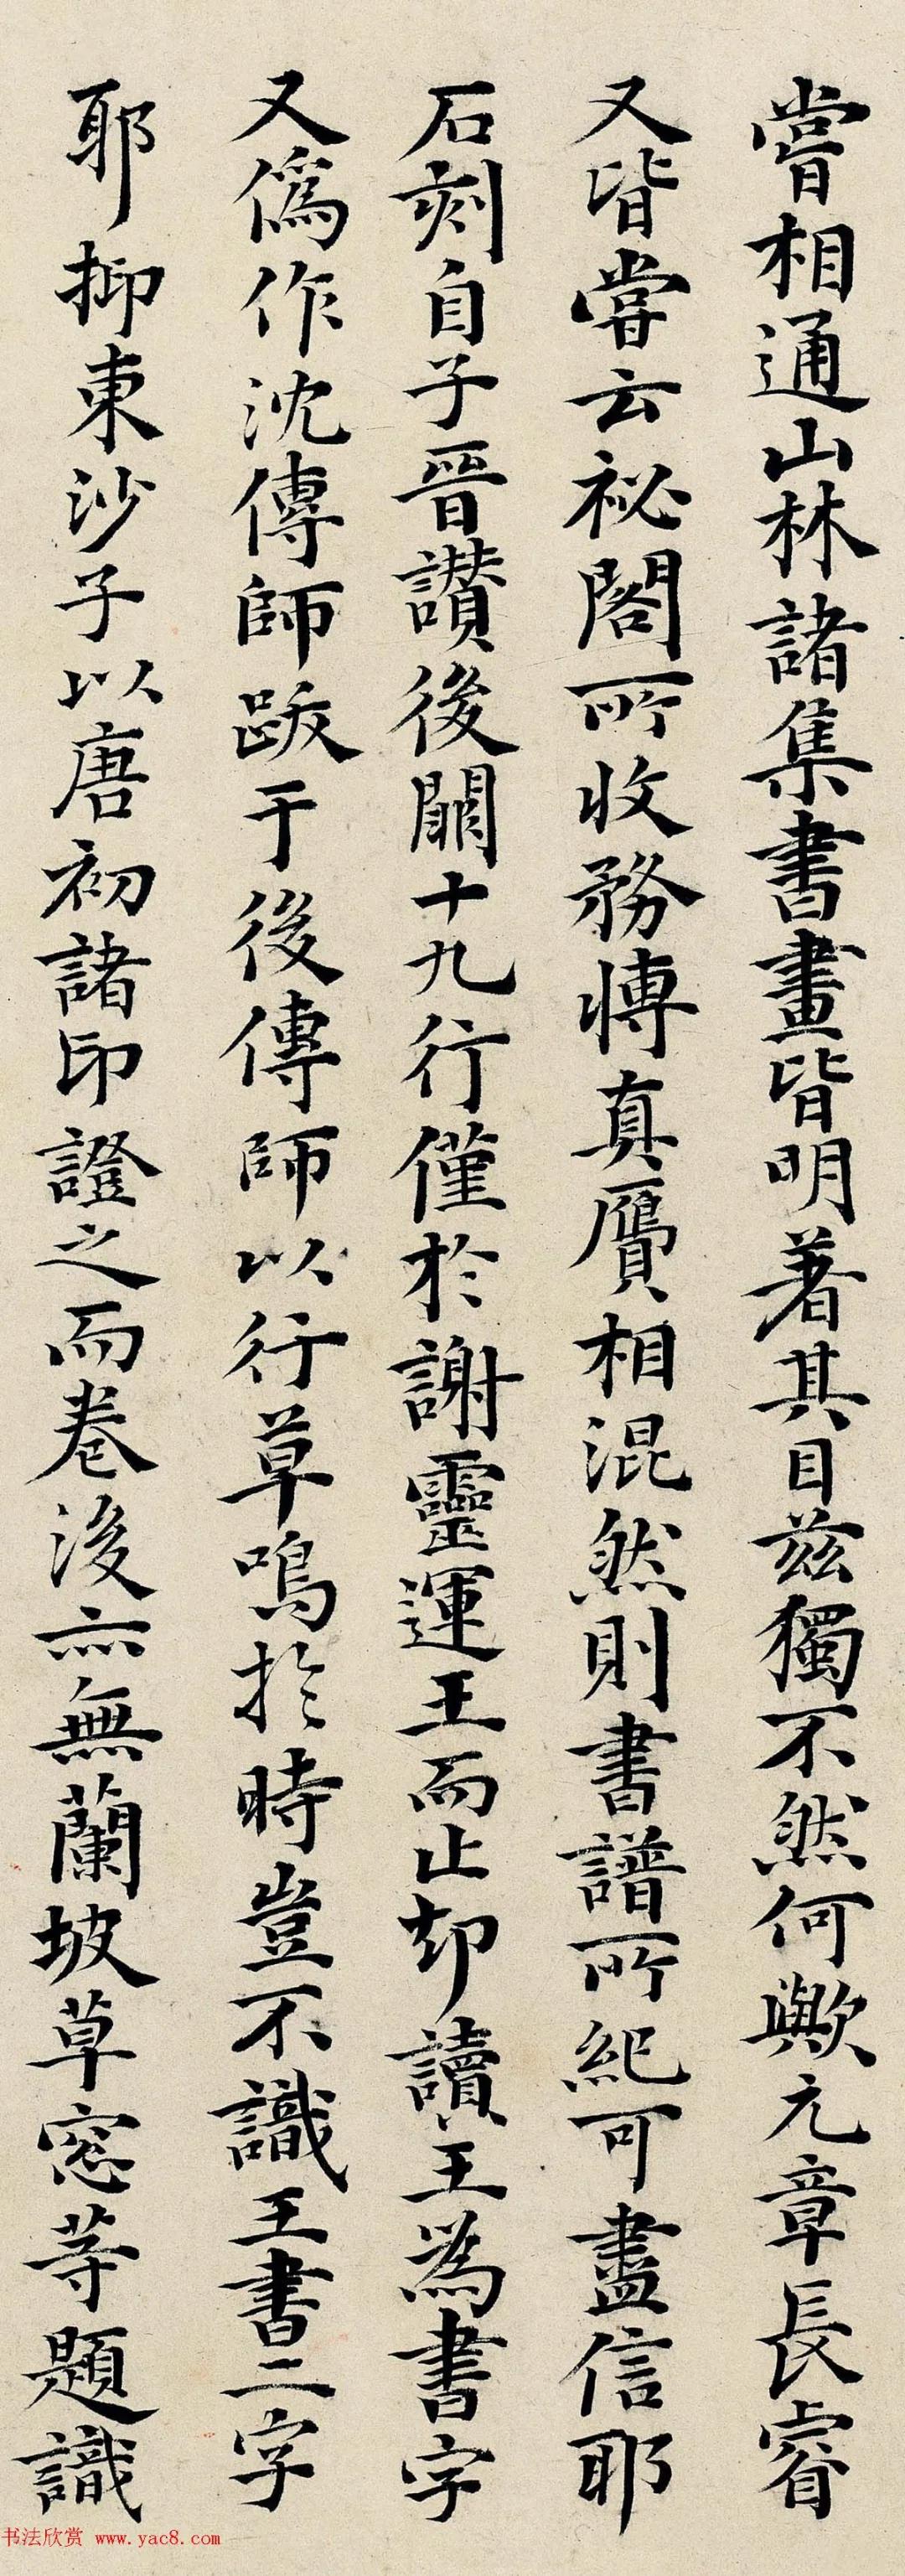 嘗相通山林諸集書畫皆明著其目茲獨不然何歟元章長睿
又皆嘗云祕閣所收務慱真贋相混然則書譜所紀可盡信耶
石刻自子晉讃後闕十九行僅於謝靈運王而止却讀王為書字
又僞作沈傳師跋于後傳師以行草鳴於時豈不識王書二字
耶抑東沙子以唐初諸印證之而卷後亦無蘭坡草窓等題識
书法欣赏 www.yac8.com